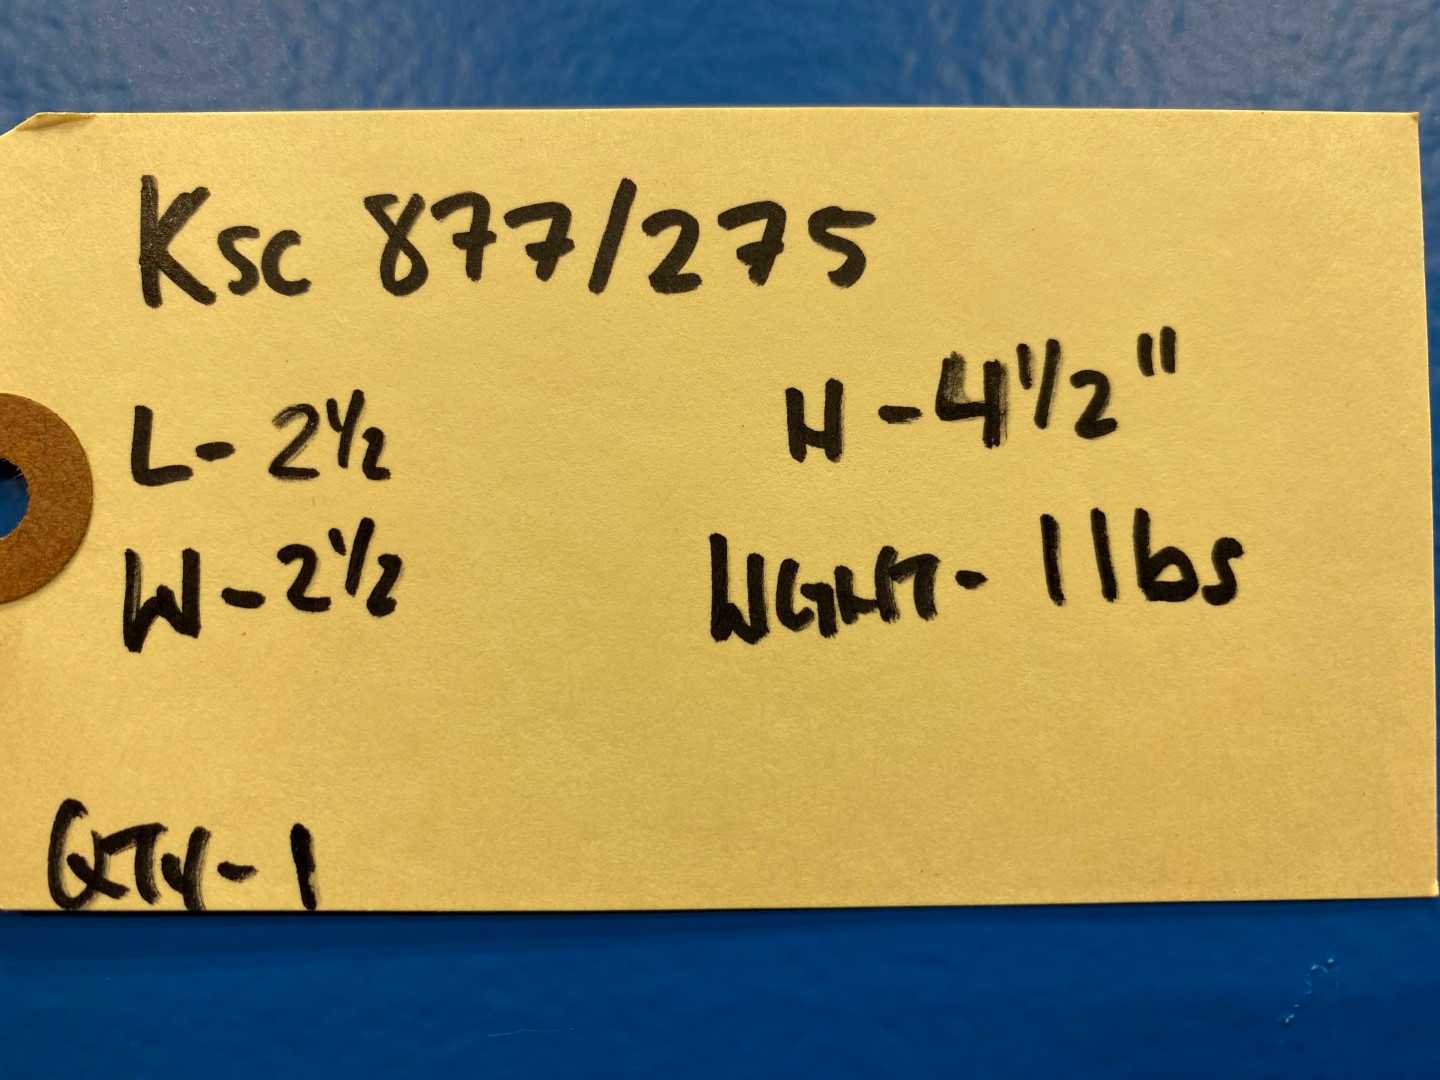 Ksc 877/275
L- 2 1/2 H - 4 1/2 "
W - 2 1/2 WGHT - 1 lbs
QTY - 1